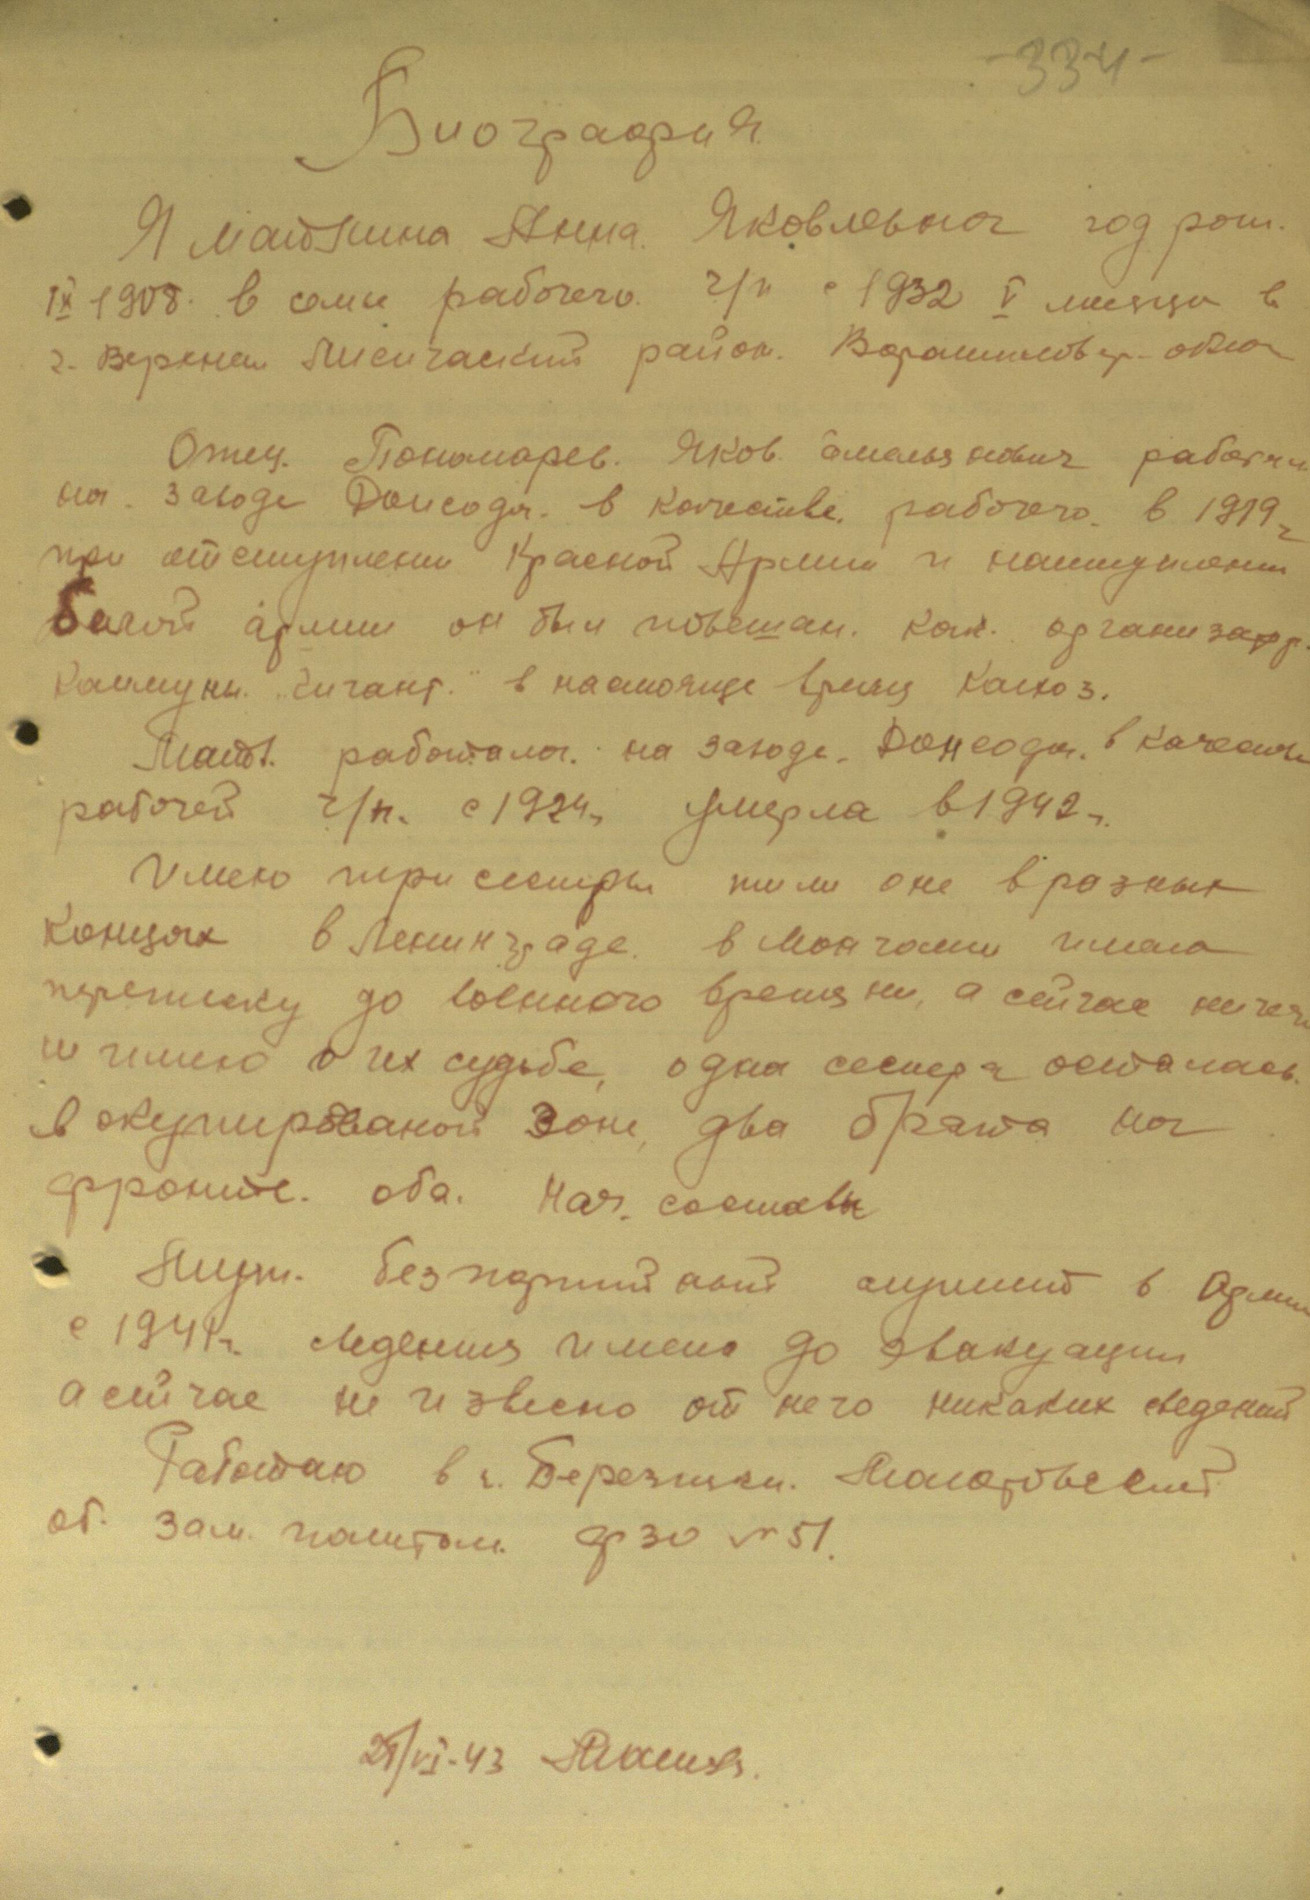 -334-
Биография
Я Маткина Анна Яковлевна год рож.
IX 1908. в семье рабочего. ч/п с 1932 V месяца в
г. Верхнем Лисичаский район. Ворошиловгр. обла
Отец. Пономарев. Яков. Амельянович работал
на. заводе Донсода. в качестве. рабочего. в 1919 г
при отступлении Красной Армии и наступлении
белой армии он был повешан. как. организатор.
Каммуны. "Гигант." в настояще время Калхоз.
Мать. работала. на заводе. Донсода. в качестве
рабочей ч/п. с 1924 г. умерла в 1942 г.
Имею три сестры жили оне в разных
концах в Ленинграде. в имела
переписку до военного времяни, а сейчас ничего
ни имею о их судьбе, одна сестра осталась.
в окупированой зоне, два брата на
фронте. оба. нач. состава
Муж. безпартийный служит в Армии
с 1941 г. сведения имела до эвакуации
а сейчас не извесно от него никаких сведений
Работаю в г. Березники. Молотовской
об. зам. политом. фзо № 51.
/VI-43